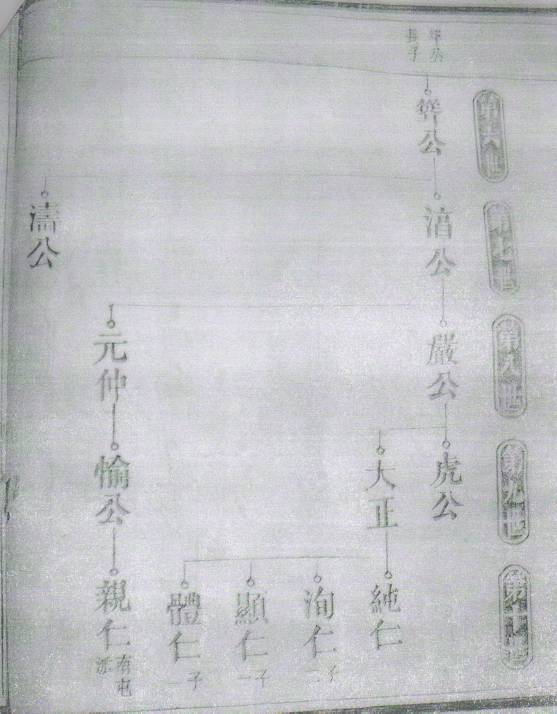 第六世
第七世
第八世
第九世
第十世
長子
公
公
嚴公
虎公
大正
純仁
洵仁
子二
顯仁
子一
體仁
子一
元仲
愉公
親仁
南屯
派
濡公